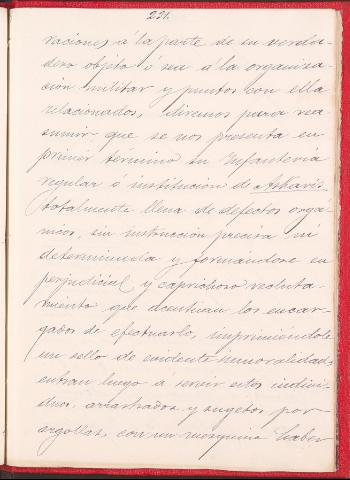 231.
raciones á la parte de su verda-
dero objeto ó sea á la organiza-
ción militar y puntos con ella
relacionados, diremos para rea-
sumir que se nos presenta en
primer término su Infantería
regular o institución de Askaris
totalmente llena de defectos orgá-
nicos, sin instrucción precisa ni
determinada y formándose en
perjudicial y caprichoso recluta-
miento que acentúan los encar-
gados de efectuarlo, imprimiéndole
un sello de evidente inmoralidad,
entran luego a servir estos indivi-
duos, arrastrados y sugetos por
argollas, con un mezquino haber